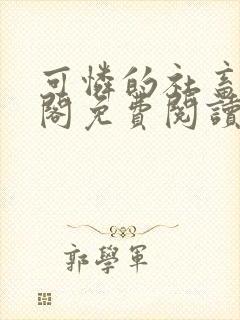 可憐的社畜
閣免費閱讀
郭學軍